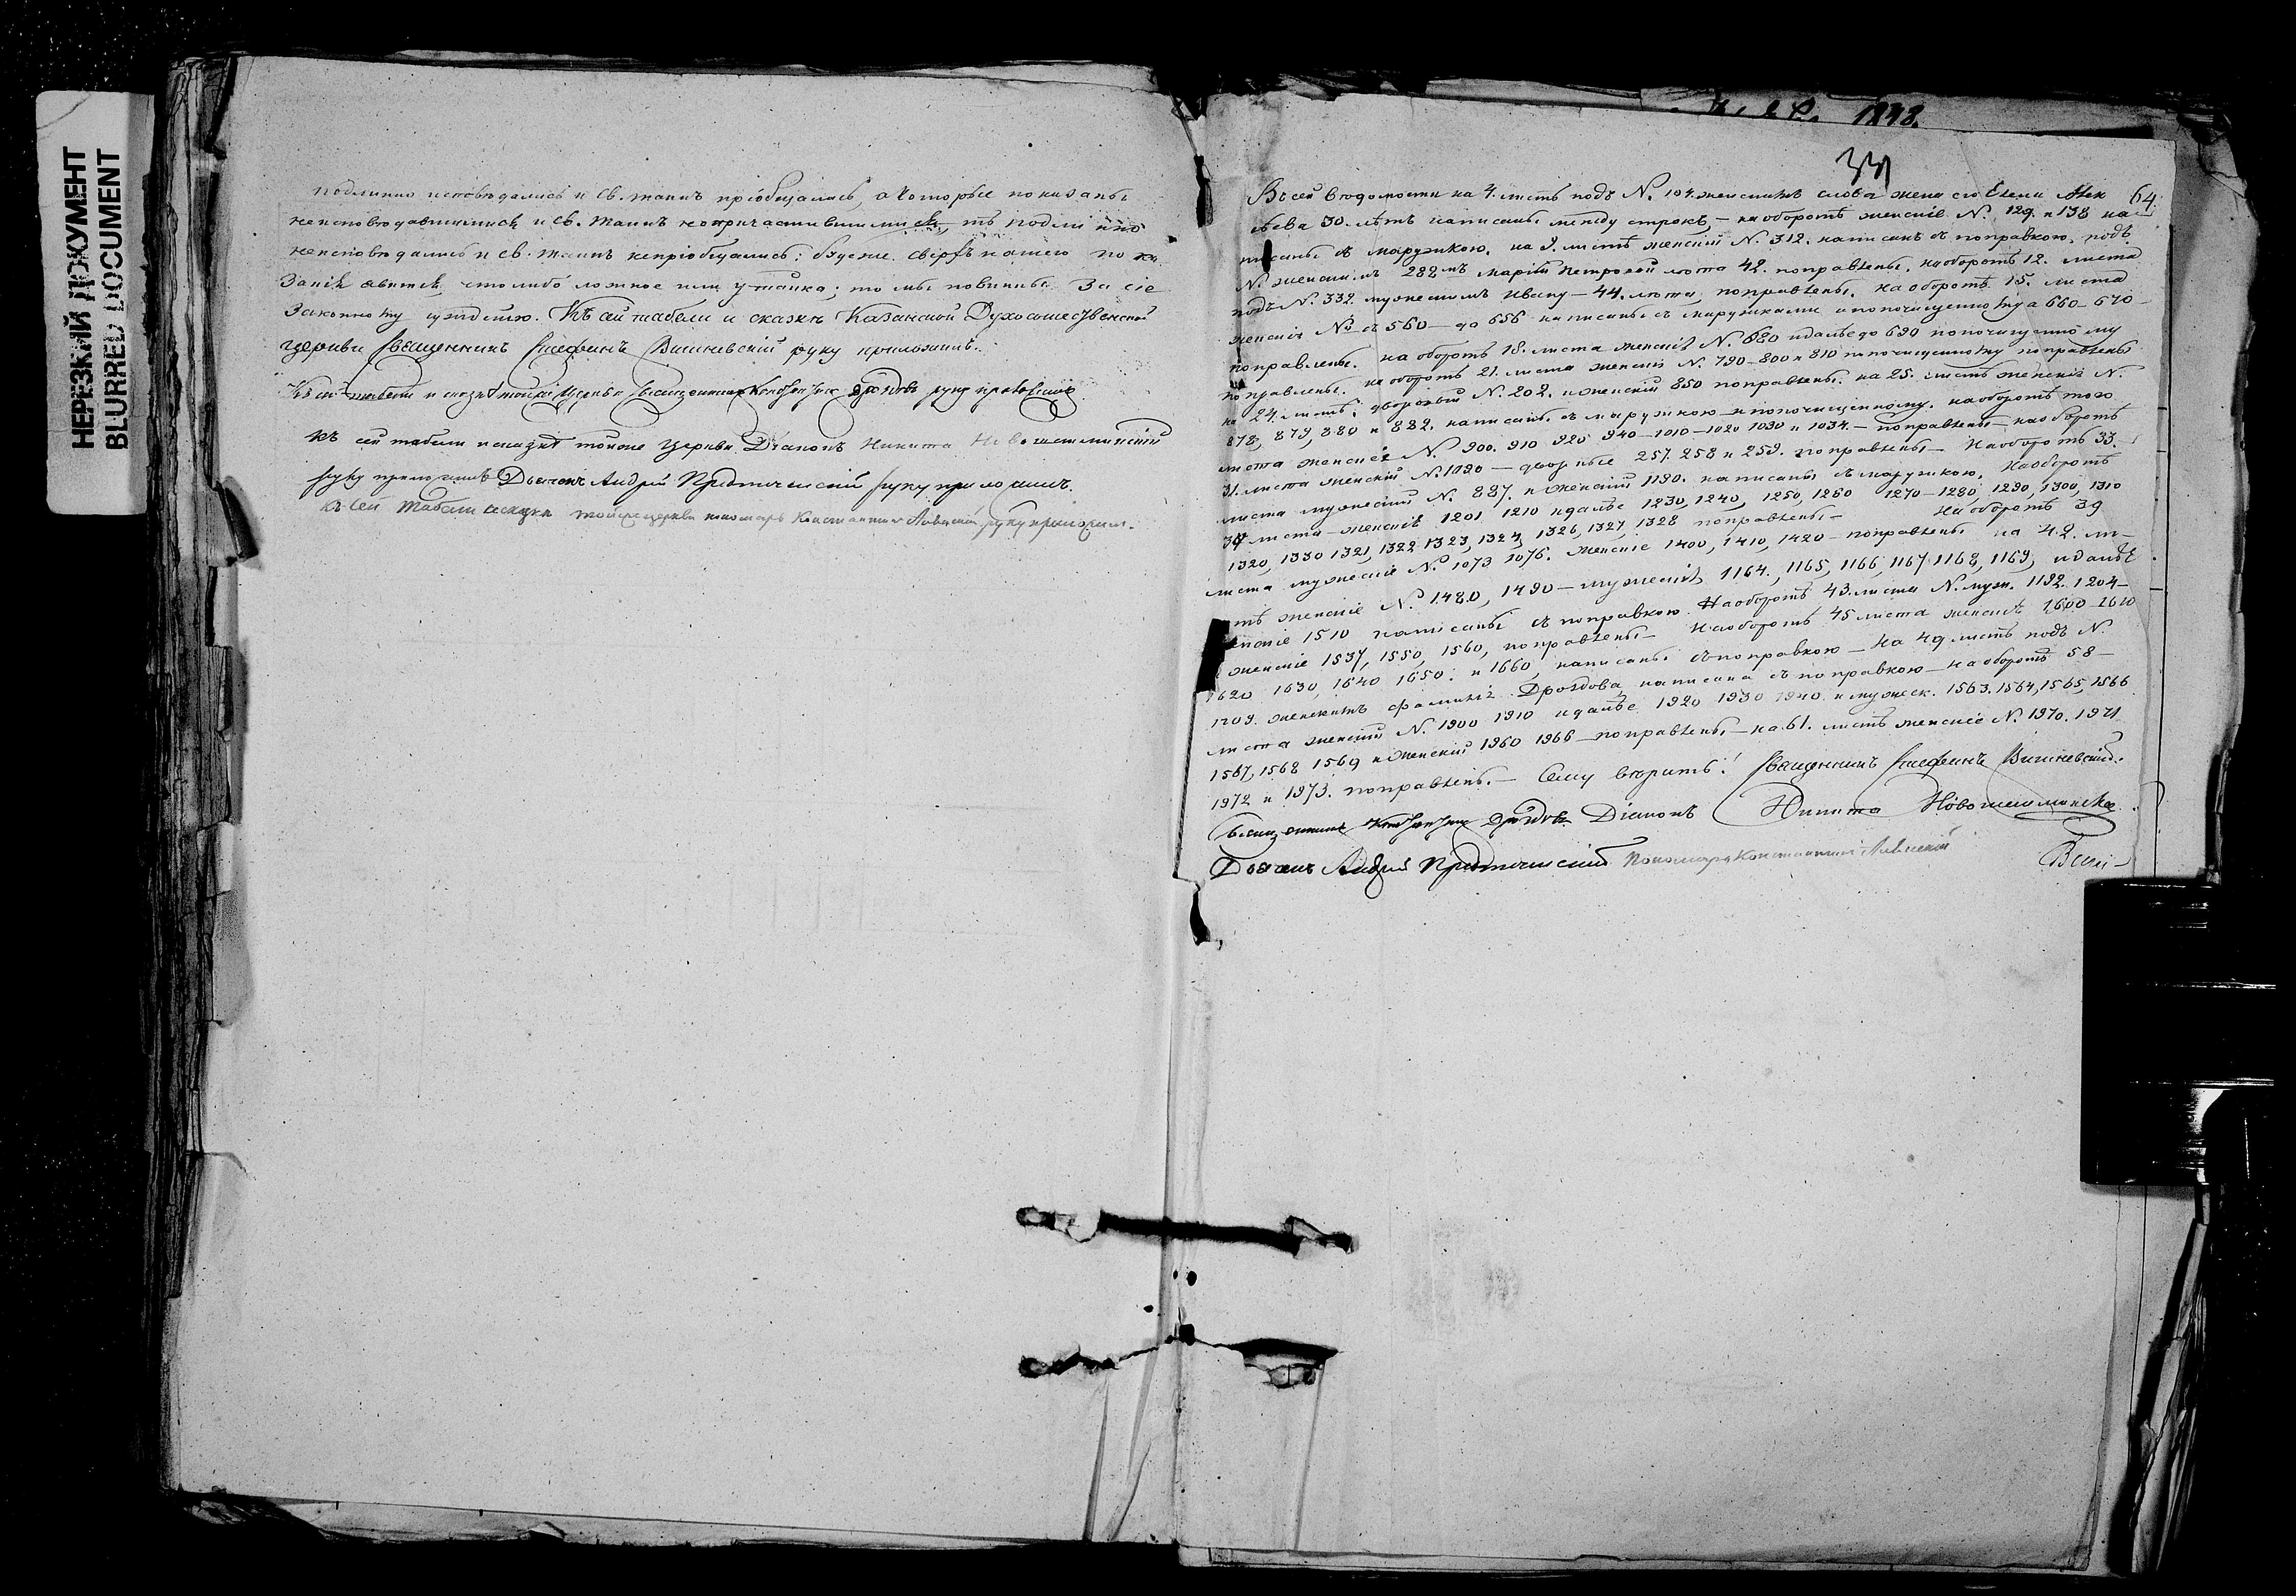 НЕРЕЗКИЙ ДОКУМЕНТ
BLURRED DOCUMENT
подлинно исповѣдались и Св. таинъ пріобщались, а которые показаны
неисповѣдавшимися и св. таинъ непричастившимися, тѣ подлинно
неисповѣдались и св. таинъ непріобщались; будеже сверхъ нашего пока
занія явится, что либо ложное или утайка; то мы повинны за сіе
законному сужденію. Къ сей табели и сказкѣ Казанской Духосошественской
церкви Священникъ Вишневскій руку приложилъ.
Къ сей табели и сказкѣ тойже Церкви Священникъ Дроздовъ руку приложилъ
къ сей табели и сказкѣ тойже церкви Діаконъ Никита Новошешминскій
руку приложилъ Дьячекъ Андрей Предтеченскій руку приложилъ.
къ сей табели и сказке тойже церкви пономарь Константинъ руку приложилъ.
1848.
64.
Въ сей вѣдомости на 4. листѣ подъ N. 104. женскимъ слова жена его Елена Алек
сѣева 30. лѣтъ написаны между строкъ, — на оборотѣ женскіе N. 129. и 138 на
писаны съ марушкою. на 9. листѣ женскій N. 312. написанъ съ поправкою. подъ
N. женским. 282мъ Марьи Петровой лѣта 42. поправлены. на оборотѣ 12. листа
подъ N. 332. мужескимъ Ивану — 44. лѣта, поправлены. на оборотѣ 15. листа
женскіе No съ 560 — до 656 написаны съ марушками и попочищенному а 660 — 670 —
поправлены. на оборотѣ 18. листа женскіе N. 680 и далѣе до 690 попочищенному
поправлены. на оборотѣ 21. листа женскіе N. 790 — 800 и 810 попочищенному поправлены
на 24. листѣ; дворовый N. 202. и женскій 850 поправлены. на 25. листѣ женскіе N.
878, 879, 880 и 882. написаны съ марушкою и попочищенному. на оборотѣ того
листа женскіе N. 900. 910 920 940 — 1010 — 1020 1030 и 1034. — поправлены — на оборотѣ
31. листа женскій N. 1090 — дворовые 257. 258 и 259. поправлены — На оборотѣ 33.
листа мужескій N. 887. и женскій 1190. написаны съ марушкою. На оборотѣ
34 листа — женскіе 1201 1210 и далѣе 1230, 1240, 1250, 1260 1270 — 1280, 1290, 1300, 1310
1320, 1330 1321, 1322 1323, 1324, 1326, 1327, 1328 поправлены — На оборотѣ 39
листа мужескіе N. 1073 1076. Женскіе 1400, 1410, 1420 — поправлены на 42. ли-
стѣ женскіе N. 1480, 1490 — мужескіе 1164., 1165, 1166, 1167, 1168, 1169, и далѣе
женскіе 1510 написаны съ поправкою. На оборотѣ 43. листа N. муж. 1192. 1204 —
женскіе 1537, 1550, 1560, поправлены — На оборотѣ 45 листа женскіе 1600 — 1610
1620 1630, 1640 1650. и 1660, написаны съ поправкою — На 49 листѣ подъ N.
1709. женскимъ фамилія Дроздова написана съ поправкою — на оборотѣ 58 —
листа женскій N. 1900 1910 и далѣе 1920 1930 1940 и мужеск. 1563. 1564, 1565, 1566
1567, 1568 1569 и Женскій 1960 1966 — поправлены, — на 61. листѣ женскіе N. 1970. 1971
1972 и 1973. поправлены. — Сему вѣрить! Священникъ Вишневскій.
Священникъ Дроздовъ Діаконъ Никита Новошешминскій
Дьячекъ Андрей Предтеченскій Пономарь Константинъ